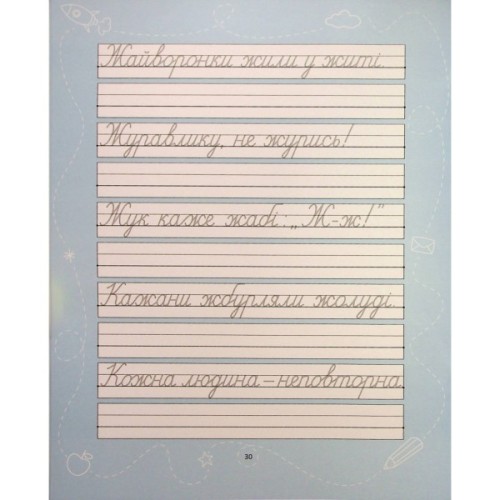 Жайворонки жили у житі.
Журавлику, не журись!
Жук каже жабі: „Ж-ж!”
Кажани жбурляли жолуді.
Кожна людина – неповторна.
30